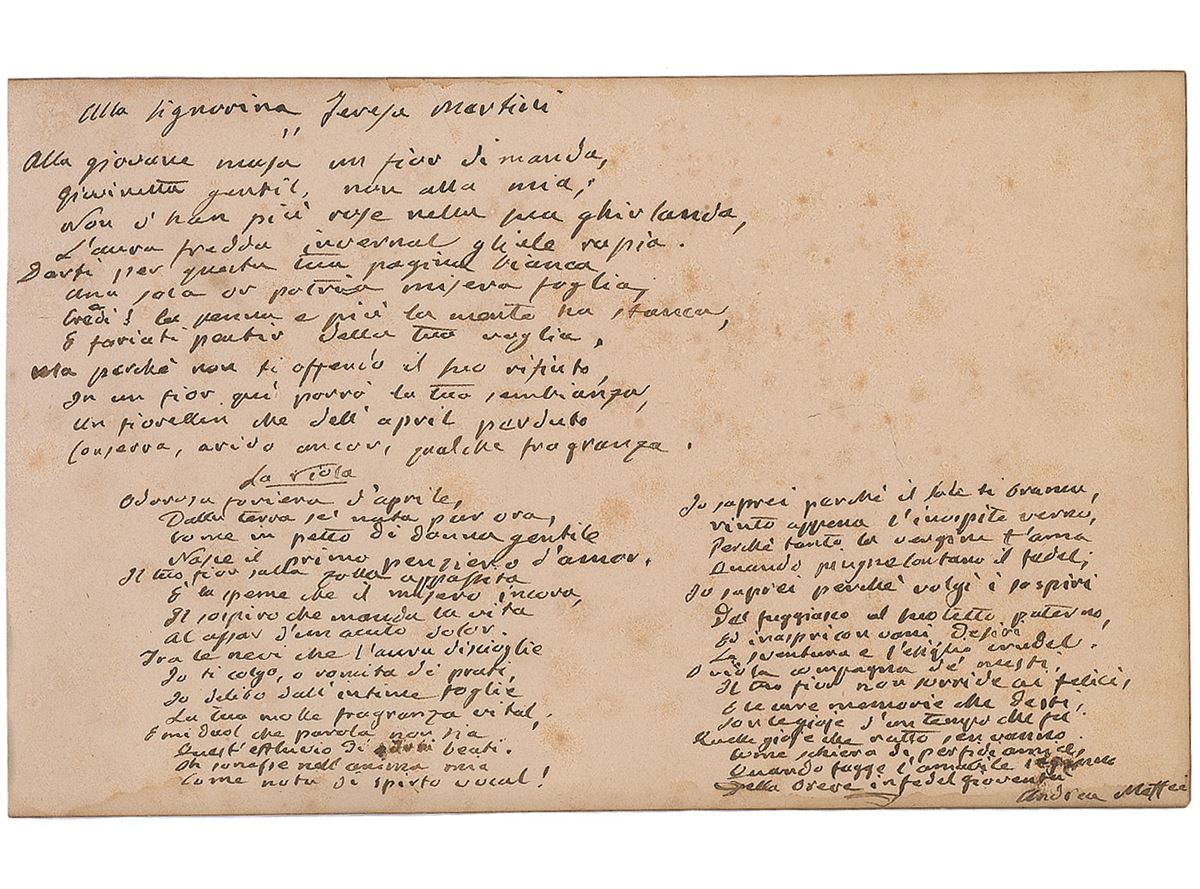 Alla Signorina Teresa Martini
Alla giovane musa un fior dimanda,
Giovinetta gentil, non alla mia;
Non v'han più rose nella sua ghirlanda,
L'aura fredda invernal gliele rapia.
Darti per questa tua pagina bianca
Una sola or potria misera foglia,
Credi! la penna e più la mente ha stanca,
E fariati pentir della tua voglia.
Ma perchè non ti offenda il suo rifiuto,
In un fior qui porrò la tua sembianza,
Un fiorellin che dell'april perduto
Conserva, arido ancor, qualche fragranza.
La viola
Odorosa foriera d'aprile,
Dalla terra sei nata pur ora,
Come in petto di donna gentile
Nasce il primo pensiero d'amor.
Il tuo fior sulla zolla appassita
È la speme che il misero incora,
Il sospiro che manda la vita
Al cessar d'un acuto dolor.
Tra le nevi che l'aura discioglie
Io ti colgo, o romita di prati,
Io delibo dall'intime foglie
La tua molle fragranza vital,
E mi duol che parola non sia
Quest'effluvio di beati.
Oh sonasse nell'anima mia
Come nota di spirto vocal!
Io saprei perchè il sole ti brama,
Vinto appena l'inospite verno,
Perchè tanto la vergine t'ama
Quando piagne lontano il fedel;
Io saprei perchè volgi i sospiri
Del fuggiasco al suo tetto paterno,
Ed inaspri con vani desiri
La sventura e l'esiglio crudel.
O viola compagna de' mesti,
Il tuo fior non sorride ai felici,
E le care memorie che desti,
Son le gioje d'un tempo che fu.
Quelle gioje che ratto sen vanno
Come schiera di perfidi amici,
Quando fugge l'amabile inganno
Della breve infedel gioventù
Andrea Maffei